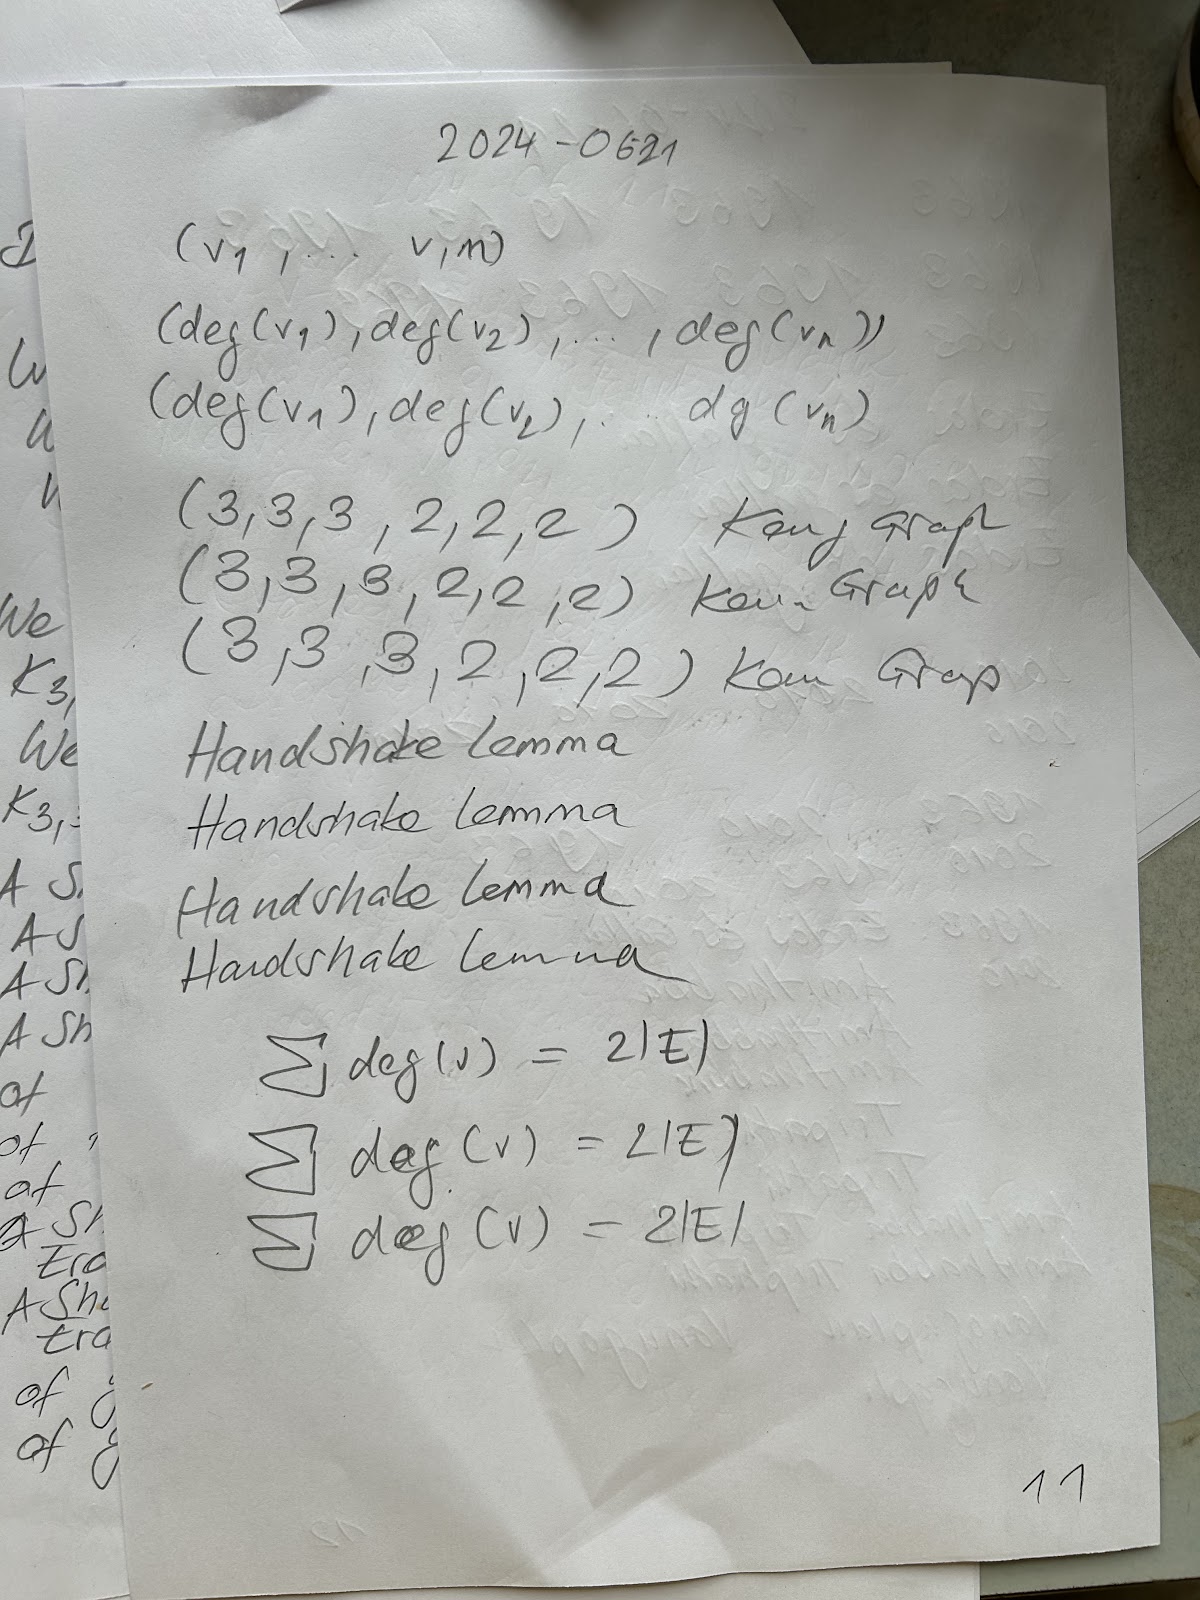 2024-0621
(v1, ... v,n)
(deg(v1), deg(v2), ..., deg(vn))
(deg(v1), deg(v2), ... dg(vn)
(3,3,3, 2,2,2) Graph
(3,3,3,2,2,2) Graph
(3,3,3,2,2,2) Grap
Handshake Lemma
Handshake Lemma
Handshake Lemma
Handshake Lemma
∑ deg(v) = 2|E|
∑ deg(v) = 2|E|
∑ deg(v) = 2|E|
11
We
K3,
We
K3,
A S
A S
A Sh
A Sh
of
of
of
A Sh
A Sh
of
of